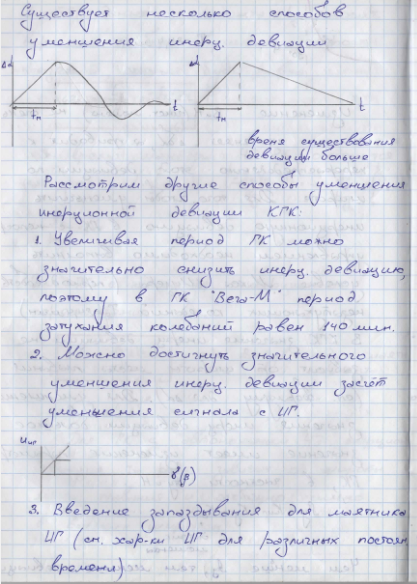 Существует несколько способов
уменшения инерц. девиации
Δα
Δα
t
t
tм
tм
время существования
девиации больше
Рассмотрим другие способы уменшения
инерционной девиации КГК:
1. Увеличивая период ГК можно
значительно снизить инерц. девиацию,
поэтому в ГК "Вега-М" период
затухания колебаний равен 140 мин.
2. Можно достигнуть значительного
уменьшения инерц. девиации засчёт
уменьшения сигнала с ИГ.
Uиг
γ(β)
3. Введение запаздывания для маятника
ИГ (см. хар-ки ИГ для различных постоян
времени)